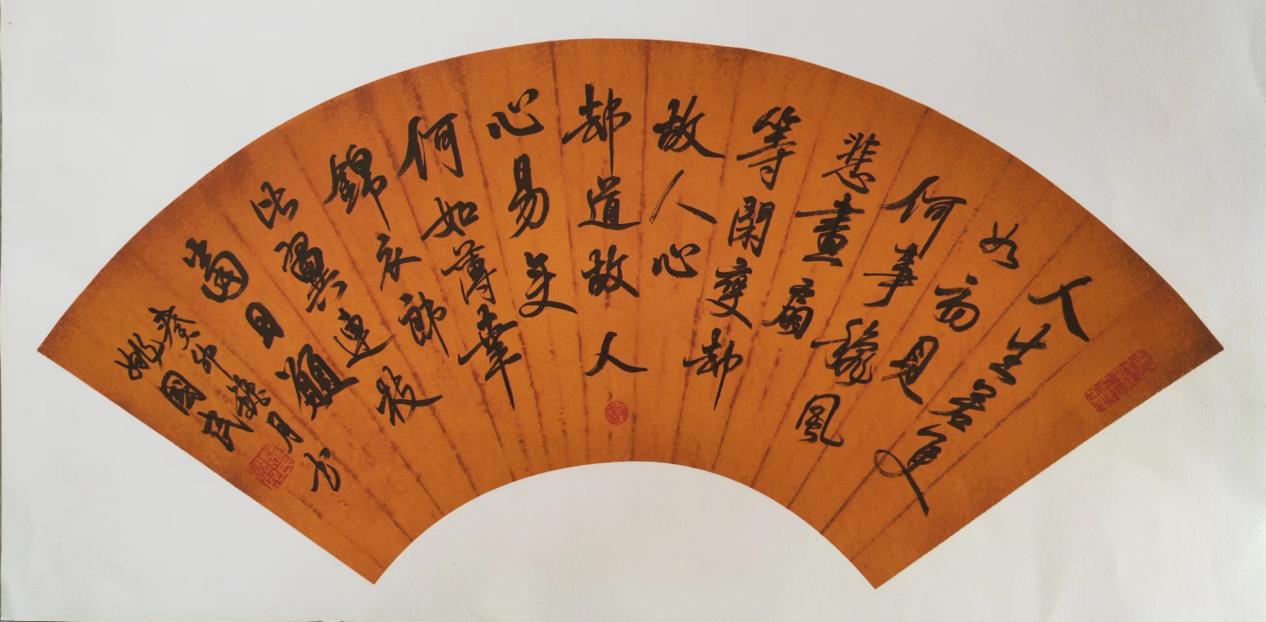 人生若更
如初見
何事穐風
悲畫扇
等閑變却
故人心
却道故人
心易变
何如薄幸
錦衣郎
比翼連枝
當日願
癸卯月书
姚國武